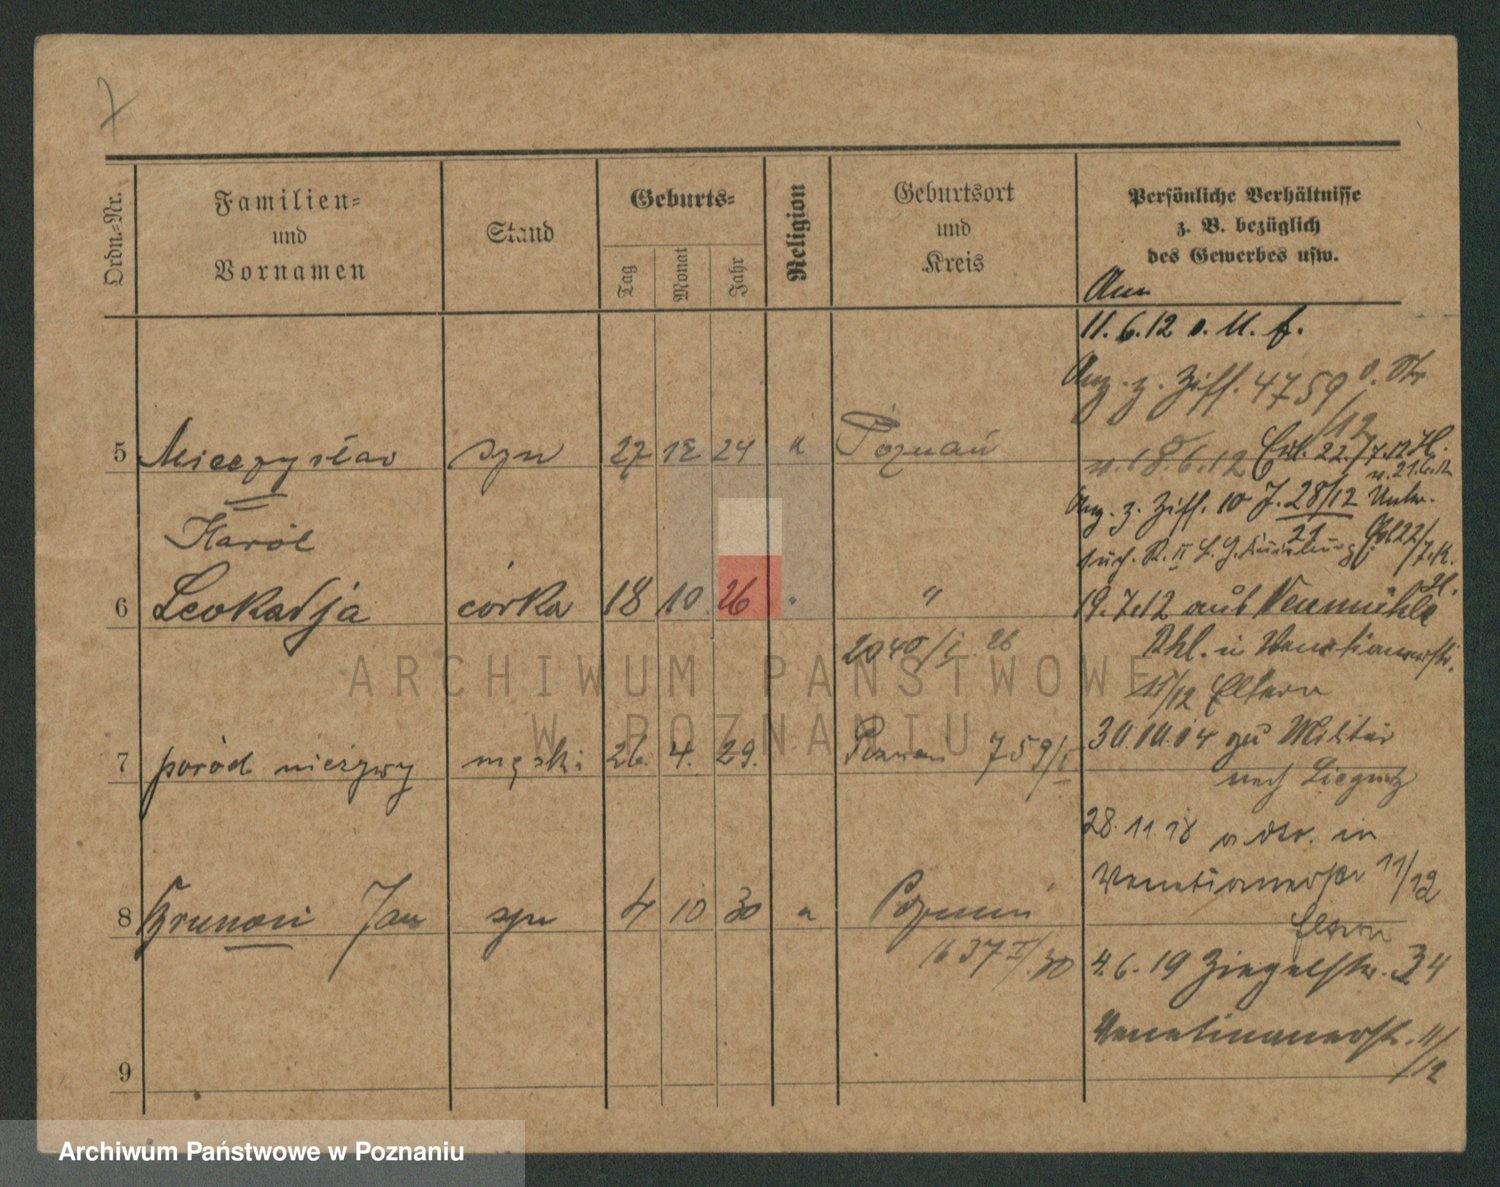 7
Ordn.-Nr.
Familien-
und
Vornamen
Stand
Geburts-
Tag
Monat
Jahr
Religion
Geburtsort
und
Kreis
Persönliche Verhältnisse
z. B. bezüglich
des Gewerbes usw.
11.6.12
z. Ziff. 4759
/12
5 Mieczysław syn 27 12 24 " Poznań
18.6.12
Karol
z. Ziff. 10 J. 28/12
21
6 Leokadja córka 18 10 26 " "
19.7.12 aus Neumühle
2040/I 26
11/12 Eltern
7 poród nieżywy męski 26. 4. 29. Poznań 759/I
30.10.14 zu Militär
nach Liegnitz
28.11.18 in
Venetianerstr 11/12
8 Brunon Jan syn 4 10 30 " Poznań
Eltern
1637 I/30
4.6.19 Ziegelstr. 34
Venetianerstr. 11/12
9
ARCHIWUM PAŃSTWOWE
W POZNANIU
Archiwum Państwowe w Poznaniu